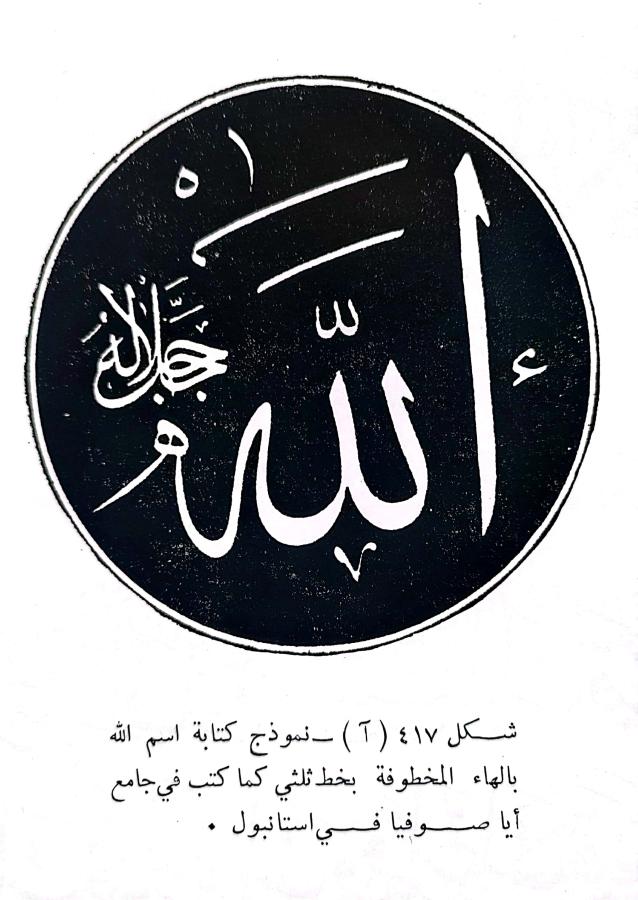 الله
جل جلاله
شكل ٤١٧ ( آ ) ـ نموذج كتابة اسم الله
بالهاء المخطوفة بخط ثلثي كما كتب في جامع
أيا صـوفيا فـي استانبول .